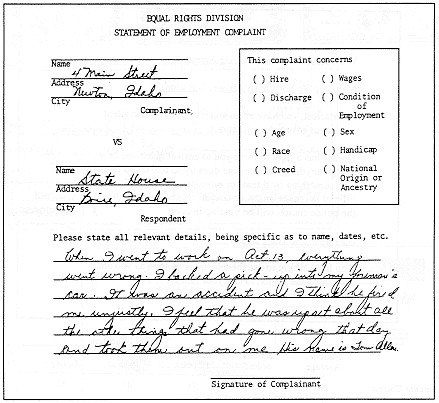 EQUAL RIGHTS DIVISION
STATEMENT OF EMPLOYMENT COMPLAINT
Name
4 Main Street
Address
Newton, Idaho
City
Complainant,
VS
Name
State House
Address
Boise, Idaho
City
Respondent
This complaint concerns
( ) Hire ( ) Wages
( ) Discharge ( ) Condition of Employment
( ) Age ( ) Sex
( ) Race ( ) Handicap
( ) Creed ( ) National Origin or Ancestry
Please state all relevant details, being specific as to name, dates, etc.
When I went to work on Oct 13, everything
went wrong. I backed a pick-up into my foreman's
car. It was an accident and I think he fired
me unjustly. I feel that he was upset about all
the other things that had gone wrong that day
and took them out on me. His name is Tom Allen.
Signature of Complainant